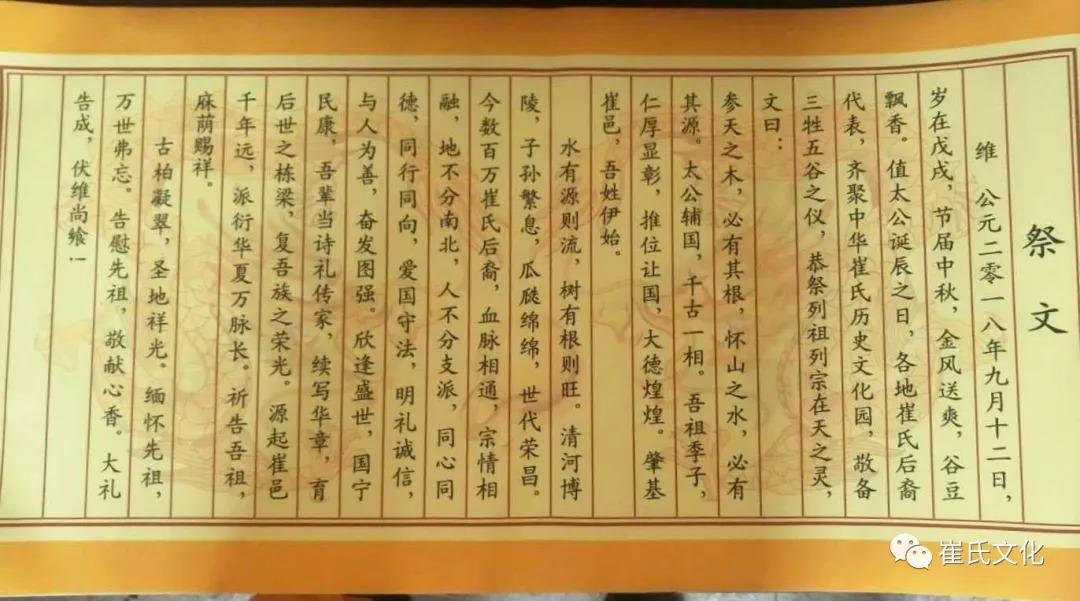 祭文
维 公元二零一八年九月十二日，
岁在戊戌，节届中秋，金风送爽，谷豆
飘香。值太公诞辰之日，各地崔氏后裔
代表，齐聚中华崔氏历史文化园，敬备
三牲五谷之仪，恭祭列祖列宗在天之灵，
文曰：
参天之木，必有其根，怀山之水，必有
其源。太公辅国，千古一相。吾祖季子，
仁厚显彰，推位让国，大德煌煌。肇基
崔邑，吾姓伊始。
水有源则流，树有根则旺。清河博
陵，子孙繁息，瓜瓞绵绵，世代荣昌。
今数百万崔氏后裔，血脉相通，宗情相
融，地不分南北，人不分支派，同心同
德，同行同向，爱国守法，明礼诚信，
与人为善，奋发图强。欣逢盛世，国宁
民康，吾辈当诗礼传家，续写华章，育
后世之栋梁，复吾族之荣光。源起崔邑
千年远，派衍华夏万脉长。祈告吾祖，
庥荫赐祥。
古柏凝翠，圣地祥光。缅怀先祖，
万世弗忘。告慰先祖，敬献心香。大礼
告成，伏维尚飨！
崔氏文化